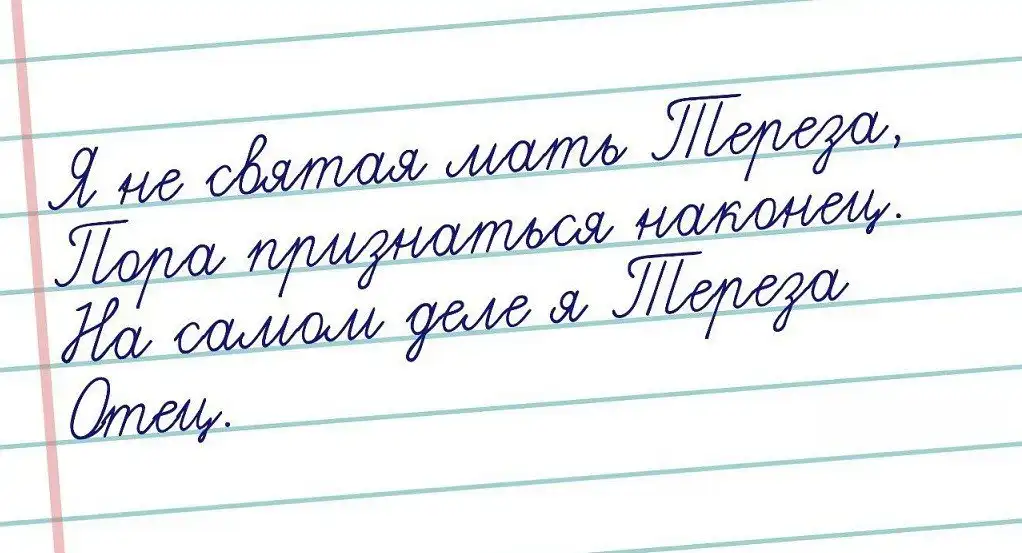 Я не святая мать Тереза,
Пора признаться наконец.
На самом деле я Тереза
Отец.